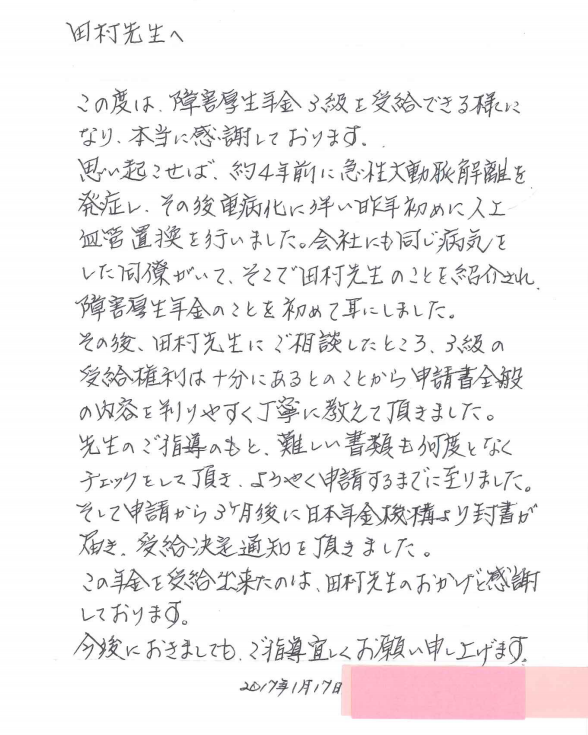 田村先生へ
この度は、障害厚生年金3級を受給できる様に
なり、本当に感謝しております。
思い起こせば、約4年前に急性大動脈解離を
発症し、その後重病化に伴い昨年初めに人工
血管置換を行いました。会社にも同じ病気を
した同僚がいて、そこで田村先生のことを紹介され、
障害厚生年金のことを初めて耳にしました。
その後、田村先生にご相談したところ、3級の
受給権利は十分にあるとのことから申請書全般
の内容を判りやすく丁寧に教えて頂きました。
先生のご指導のもと、難しい書類も何度となく
チェックをして頂き、ようやく申請するまでに至りました。
そして申請から3ヶ月後に日本年金機構より封書が
届き、受給決定通知を頂きました。
この年金を受給出来たのは、田村先生のおかげと感謝
しております。
今後におきましても、ご指導宜しくお願い申し上げます。
2017年1月17日